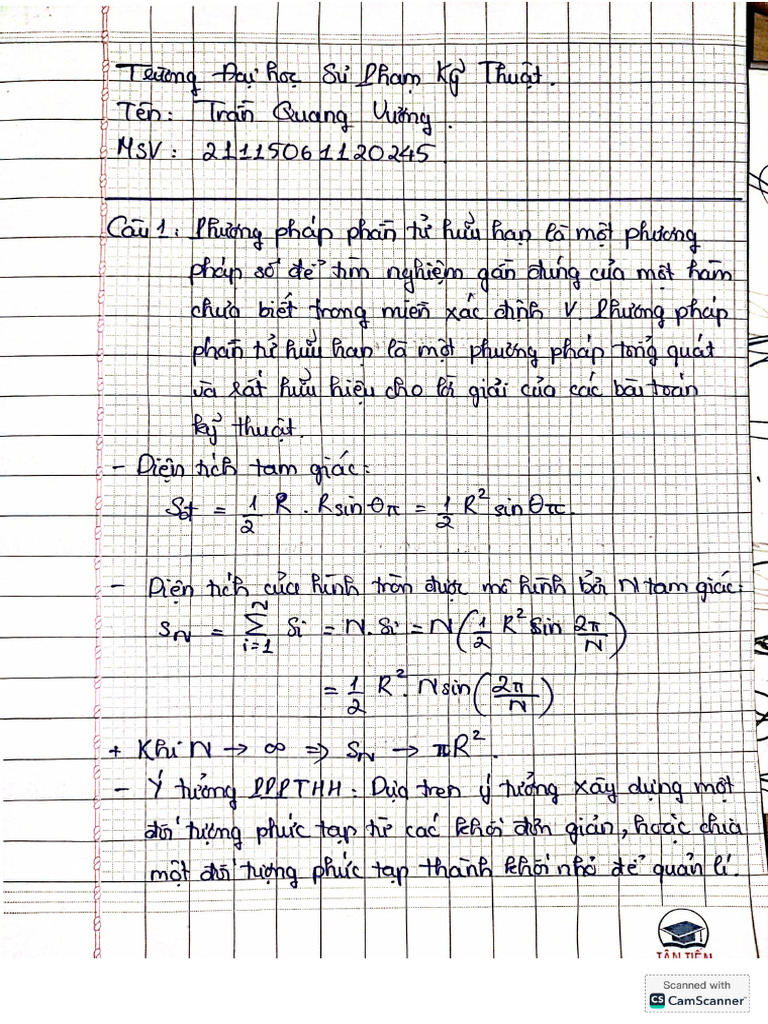 Trường Đại học Sư Phạm Kỹ Thuật.
Tên: Trần Quang Vường.
MSV: 21115061120245
Câu 1: Phương pháp phần tử hữu hạn là một phương
pháp số để tìm nghiệm gần đúng của một hàm
chưa biết trong miền xác định V. Phương pháp
phần tử hữu hạn là một phương pháp tổng quát
và rất hữu hiệu cho lời giải của các bài toán
kỹ thuật.
- Diện tích tam giác:
S = 1/2 R . R sin θπ = 1/2 R² sin θπ.
- Diện tích của hình tròn được mô hình bởi N tam giác:
S_N = Σ_{i=1}^{N} Si = N. Si = N(1/2 R² sin 2π/N)
= 1/2 R². N sin(2π/N)
+ Khi N → ∞ => S_N → πR².
- Ý tưởng PPPTHH: Dựa trên ý tưởng xây dựng một
đối tượng phức tạp từ các khối đơn giản, hoặc chia
một đối tượng phức tạp thành khối nhỏ để quản lí.
TÂN TIẾN
Scanned with
CS CamScanner